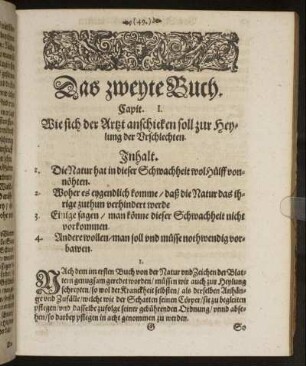 (49.)
Das zweyte Buch.
Capit. I.
Wie sich der Artzt anschicken soll zur Hey-
lung der Vrschlechten.
Inhalt.
1. Die Natur hat in dieser Schwachheit wol Hülff von-
nöhten.
2. Woher es eygendlich komme / daß die Natur das ih-
rige zuthun verhindert werde
3. Einige sagen / man könne dieser Schwachheit nicht
vorkommen.
4. Andere wollen / man soll vnd müsse nothwendig vor-
bawen.
1.
NAch dem im ersten Buch von der Natur vnd Zeichen der Blat-
tern genugsam geredet worden / müssen wir auch zur Heylung
schreyten / so wol der Kranckheit selbsten / als derselben Anhän-
ge vnd Zufälle / welche wie der Schatten seinen Cörper / sie zu begleiten
pflegen / vnd dasselbe zufolge seiner gebührenden Ordnung / vnnd abse-
hen / so darbey pflegen in acht genommen zu werden.
G So